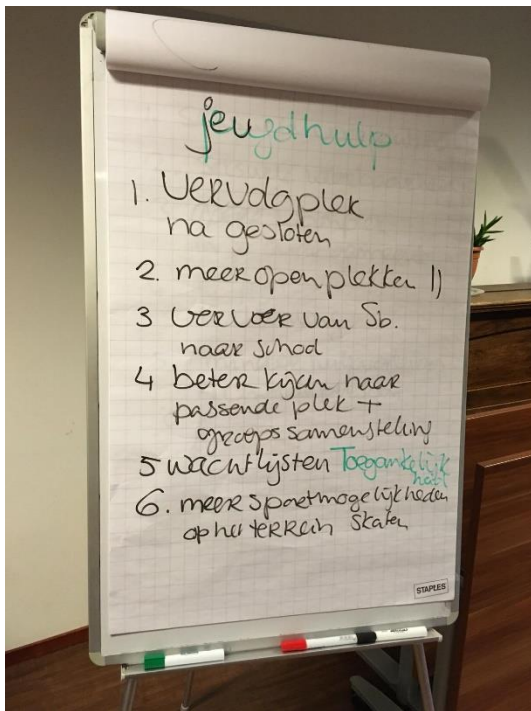 jeugdhulp
1. Vervolgplek
na gesloten
2. meer open plekken 1)
3 vervoer van Sb.
naar school
4 beter kijken naar
passende plek +
groepssamenstelling
5 wachtlijsten Toegankelijk
heid
6. meer sportmogelijkheden
op het terrein skaten
STAPLES